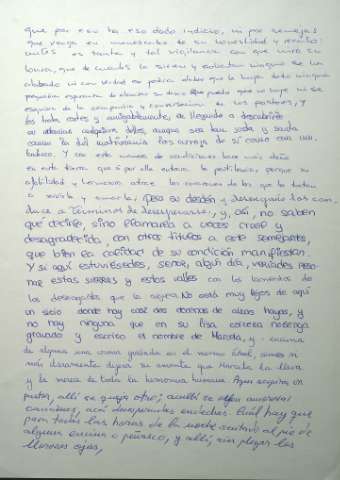 que por eso ha
que venga en menoscabo de su honestidad y recato:
antes es tanta y tal vigilancia con que mira su
honra, que de cuantos la sirven y solicitan ninguno se ha
alabado ni con verdad se podrá alabar que le haya dado alguna
pequeña esperanza de alcanzar su deseo. Que puesto que no huye ni se
esquiva de la compañía y conversación de los pastores, y
los trata cortés y amigablemente, en llegando a descubrirle
su intención cualquiera dellos, aunque sea tan justa y santa
como la del matrimonio los arroja de sí como con un
trabuco. Y con esta manera de condición hace más daño
en esta tierra que si por ella entrara la pestilencia, porque su
afabilidad y hermosura atrae los corazones de los que la tratan
a servirla y amarla, pero su desdén y desengaño los con
duce a términos de desesperarse, y, así, no saben
que decirle, sino llamarla a voces cruel y
desagradecida, con otros títulos a este semejantes,
que bien la calidad de su condición manifiestan.
Y si aquí estuviésedes, señor, algún día, veríades reso-
nar estas sierras y estos valles con los lamentos de
los desengañados que la siguen. No está muy lejos de aquí
un sitio donde hay casi dos docenas de altas hayas, y
no hay ninguna que en su lisa corteza no tenga
grabado y escrito el nombre de Marcela, y encima
de alguna una corona grabada en el mesmo árbol, como si
más claramente dijera su amante que Marcela la lleva
y la merece de toda la hermosura humana. Aquí suspira un
pastor, allí se queja otro; acullá se oyen amorosas
canciones, acá desesperadas endechas. Cuál hay que
pasa todas las horas de la noche sentado al pie de
alguna encina o peñasco, y allí, sin plegar los
llorosos ojos,